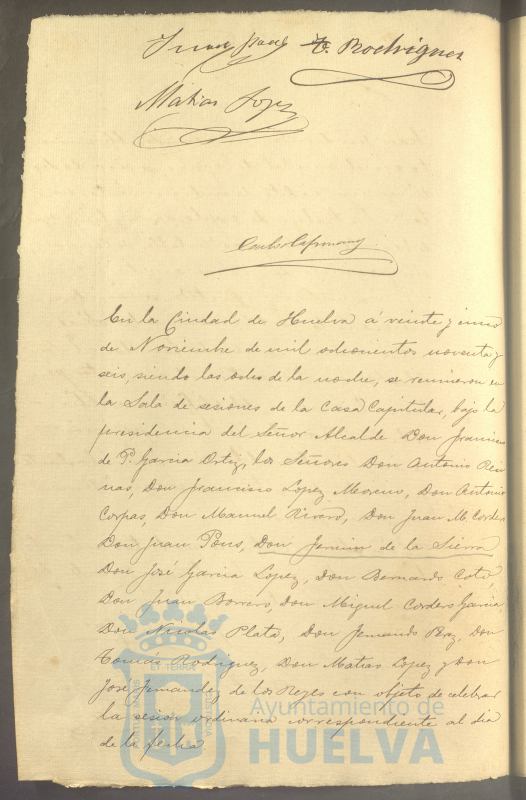 T. Rodriguez
Matias Lopez
En la Ciudad de Huelva á veinte y uno
de Noviembre de mil ochocientos noventa y
seis, siendo las ocho de la noche, se reunieron en
la Sala de sesiones de la Casa Capitular, bajo la
presidencia del Señor Alcalde Don Francisco
de P. Garcia Ortiz, los Señores Don Antonio
Don Francisco Lopez Moreno, Don Antonio
Corpas, Don Manuel Rivero, Don Juan M. Cordero
Don Juan Pons, Don de la Sierra
Don José Garcia Lopez, Don Bernardo Coto,
Don Juan Borrero, Don Miguel Cordero Garcia
Don Nicolas Plata, Don Fernando Don
Tomás Rodriguez, Don Matias Lopez y Don
José Fernandez de los Reyes con objeto de celebrar
la sesión ordinaria correspondiente al dia
de la fecha
Ayuntamiento de
HUELVA